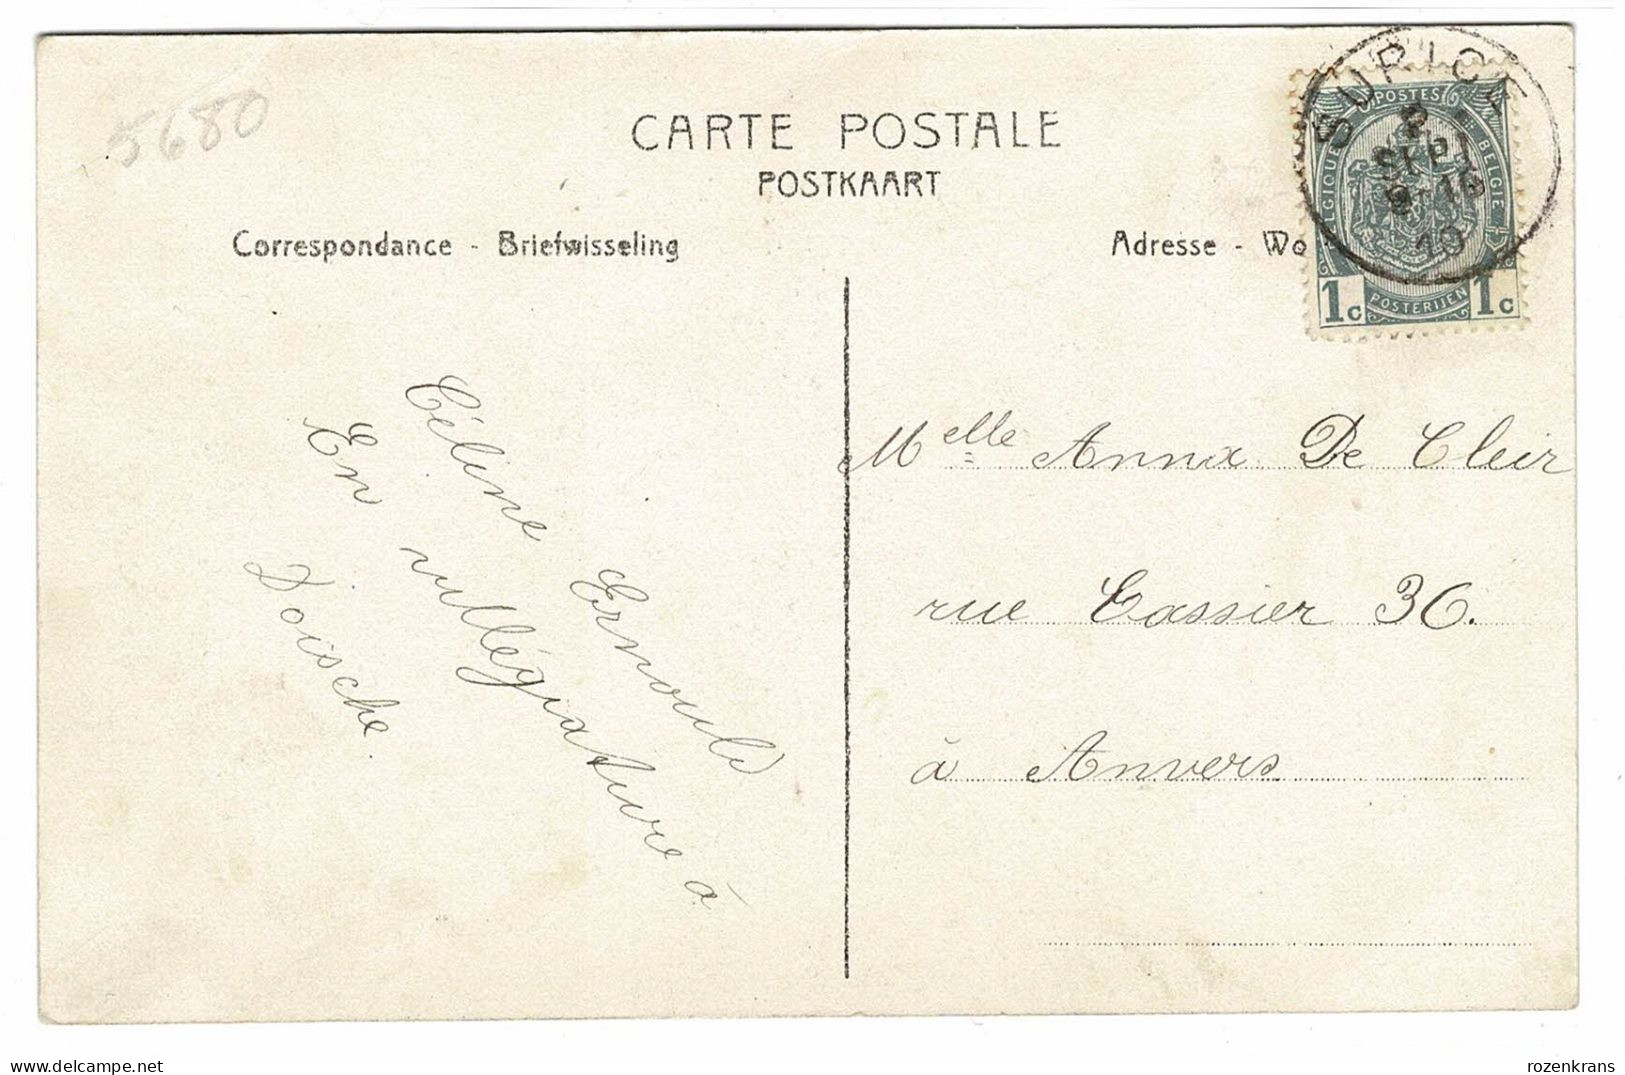 5680
CARTE POSTALE
POSTKAART
Correspondance - Briefwisseling
Adresse - Wo
SURICE
2
SEPT
9-16
10
POSTES
BELGIQUE
BELGIE
1c
POSTERIJEN
1c
Céline Ernould
En villégiature à
Doische.
Melle Anna De Cleir
rue Cassier 36.
à Anvers
delcampe.net
rozenkrans